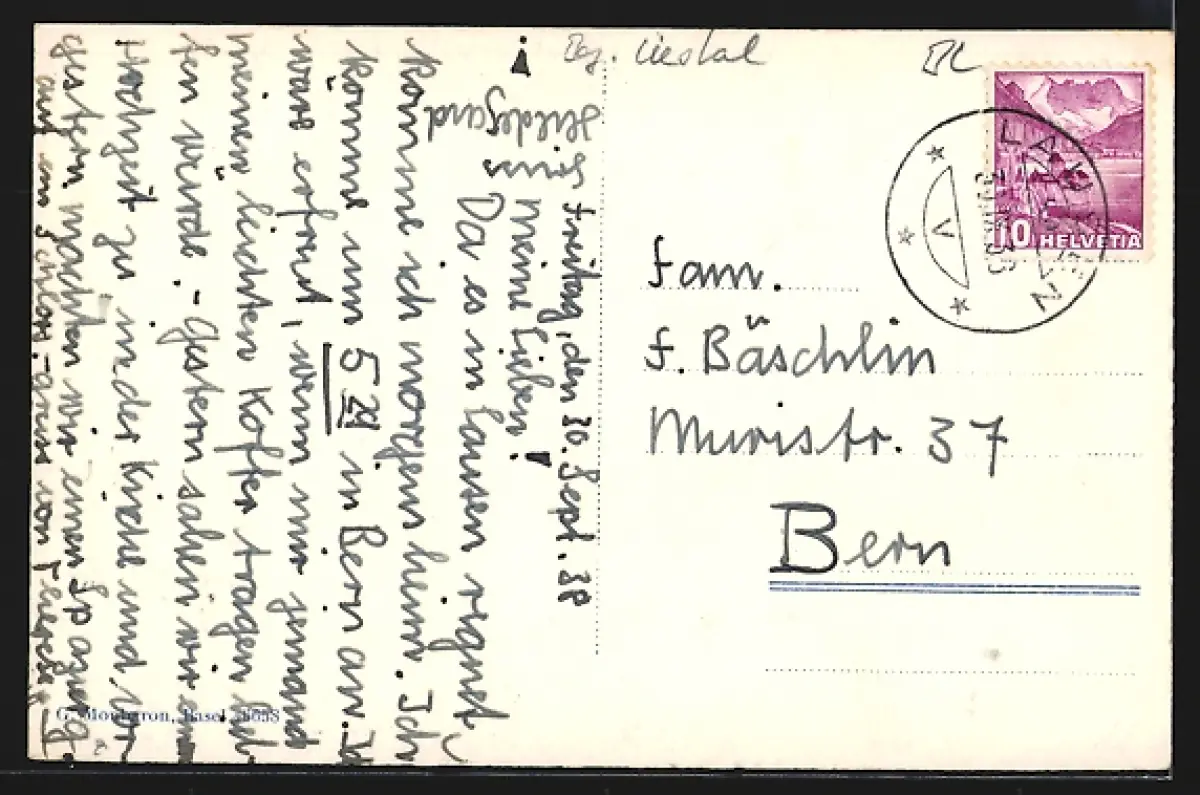 Freitag, den 30. Sept. 38
Meine Lieben!
Da es in Lausen regnet
komme ich morgen heim. Ich
komme um 5 in Bern an. Ich
wäre erfreut, wenn mir jemand
meinen leichten Koffer tragen
fen würde. - Gestern sahen wir eine
Hochzeit zu in der Kirche und vor-
gestern machten wir einen Spazierg.
auf ein Schloss. - Gruss von Therese
Hildegard
Liestal
BL
LAUSEN
V
10 HELVETIA
Fam.
F. Bäschlin
Muristr. 37
Bern
Basel